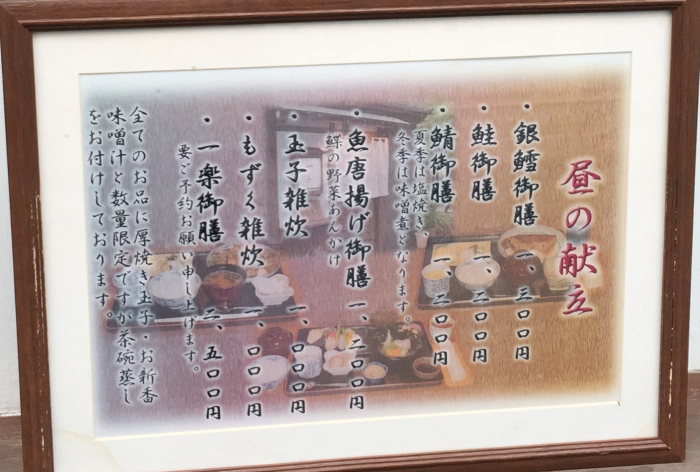 昼の献立
・銀鱈御膳 一、三〇〇円
・鮭御膳 一、二〇〇円
・鯖御膳 一、二〇〇円
夏季は塩焼き、
冬季は味噌煮となります。
・魚唐揚げ御膳 一、二〇〇円
鰈の野菜あんかけ
・玉子雑炊 一、〇〇〇円
・もずく雑炊 一、〇〇〇円
・一楽御膳 二、五〇〇円
要ご予約お願い申し上げます。
全てのお品に厚焼き玉子・お新香
味噌汁と数量限定ですが茶碗蒸し
をお付けしております。